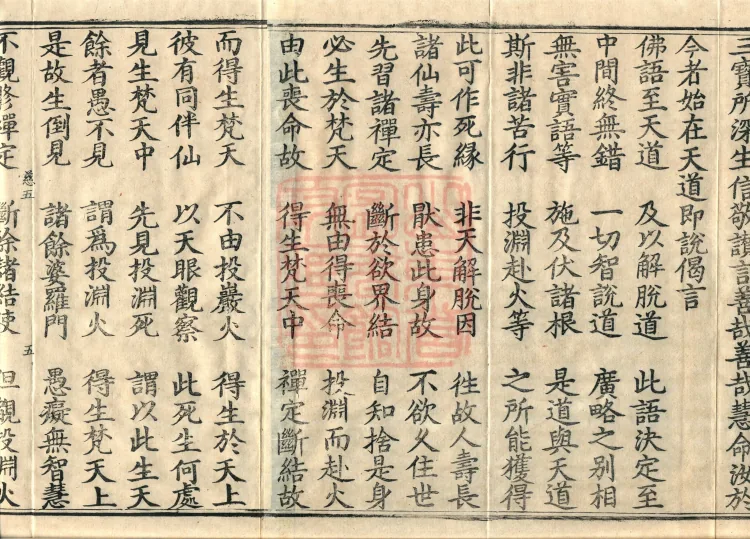 三寶所深生信敬讚言善哉善哉慧命汝於
今者始在天道即說偈言
佛語至天道 及以解脫道 此語決定至
中間終無錯 一切智說道 廣略之別相
無害實語等 施及伏諸根 是道與天道
斯非諸苦行 投淵赴火等 之所能獲得
此可作死緣 非天解脫因 往故人壽長
諸仙壽亦長 厭患此身故 不欲久住世
先習諸禪定 斷於欲界結 自知捨是身
必生於梵天 無由得喪命 投淵而赴火
由此喪命故 得生梵天中 禪定斷結故
而得生梵天 不由投巖火 得生於天上
彼有同伴仙 以天眼觀察 此死生何處
見生梵天中 先見投淵死 謂以此生天
餘者愚不見 謂爲投淵火 得生梵天上
是故生倒見 諸餘婆羅門 愚癡無智慧
慈五 五
不觀修禪定 斷除諸結使 但觀投淵火